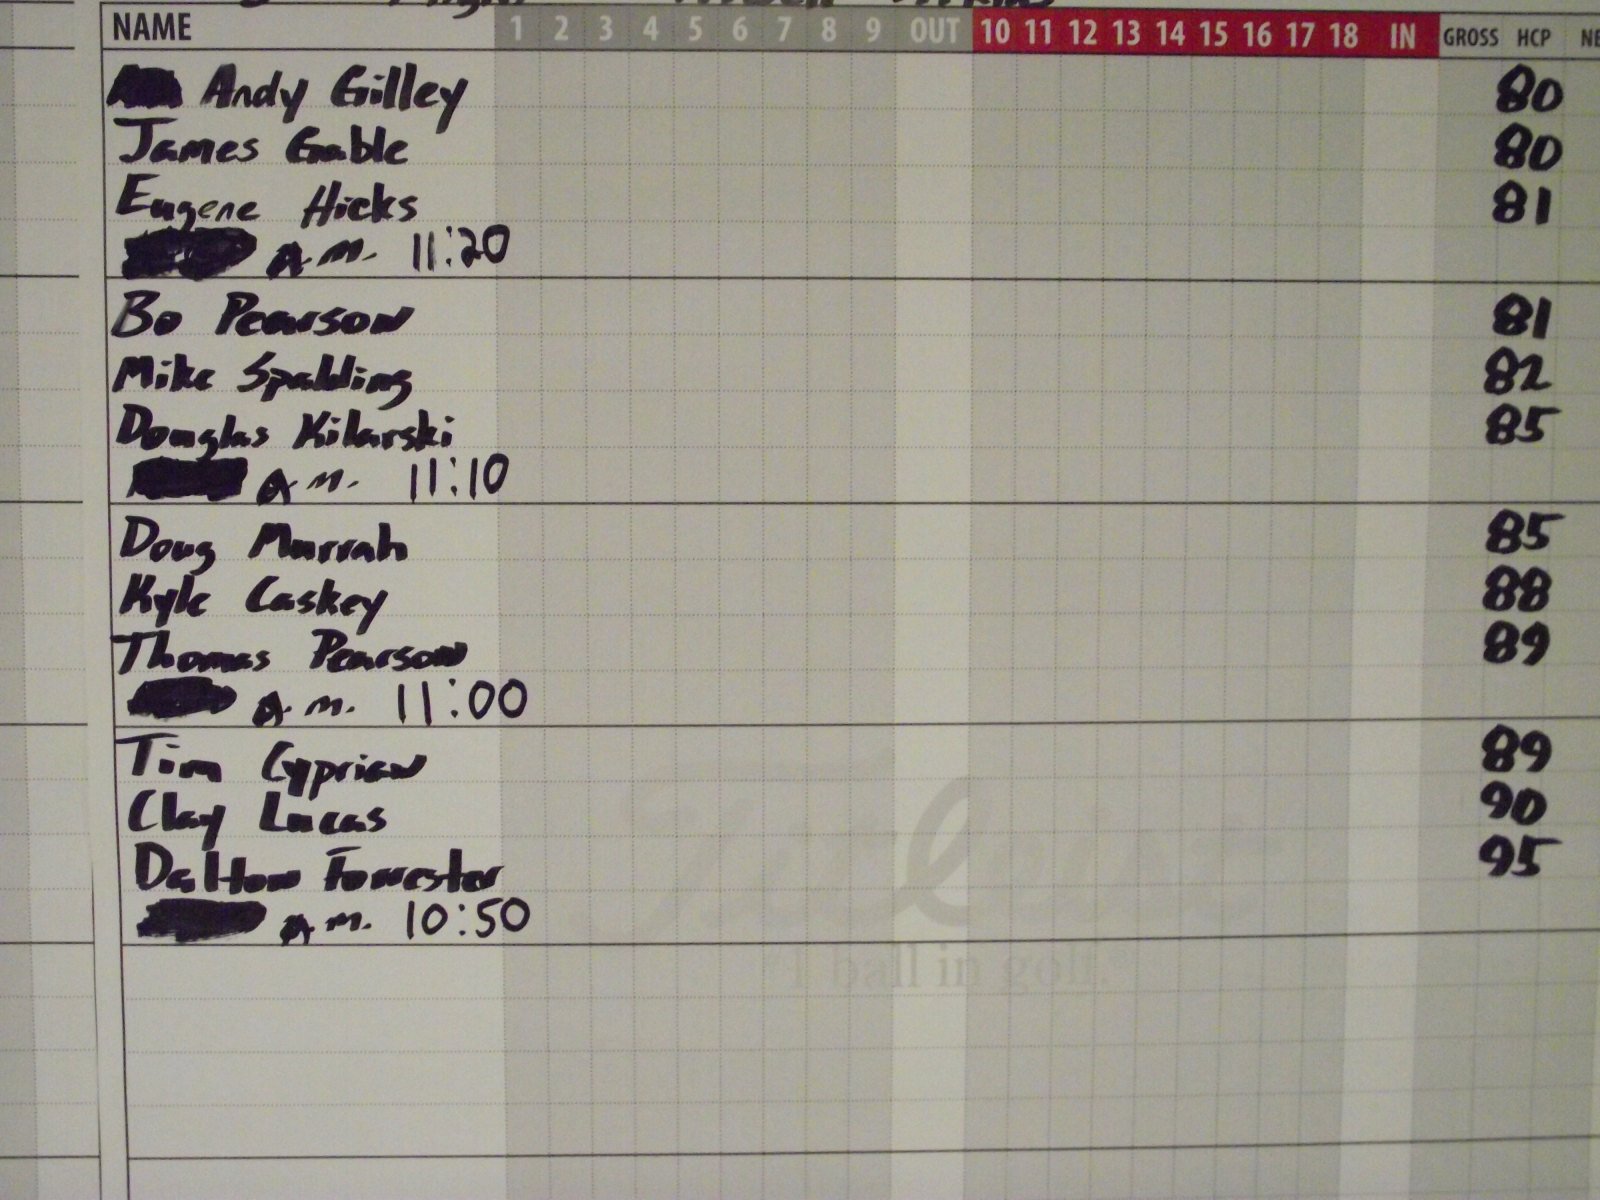 NAME 1 2 3 4 5 6 7 8 9 OUT 10 11 12 13 14 15 16 17 18 IN GROSS HCP
Andy Gilley 80
James Gable 80
Eugene Hicks 81
a.m. 11:20
Bo Pearson 81
Mike Spalding 82
Douglas Kilarski 85
a.m. 11:10
Doug Murrah 85
Kyle Caskey 88
Thomas Pearson 89
a.m. 11:00
Tim Cyprian 89
Clay Lucas 90
Dalton Forrester 95
a.m. 10:50
Titleist
#1 ball in golf.